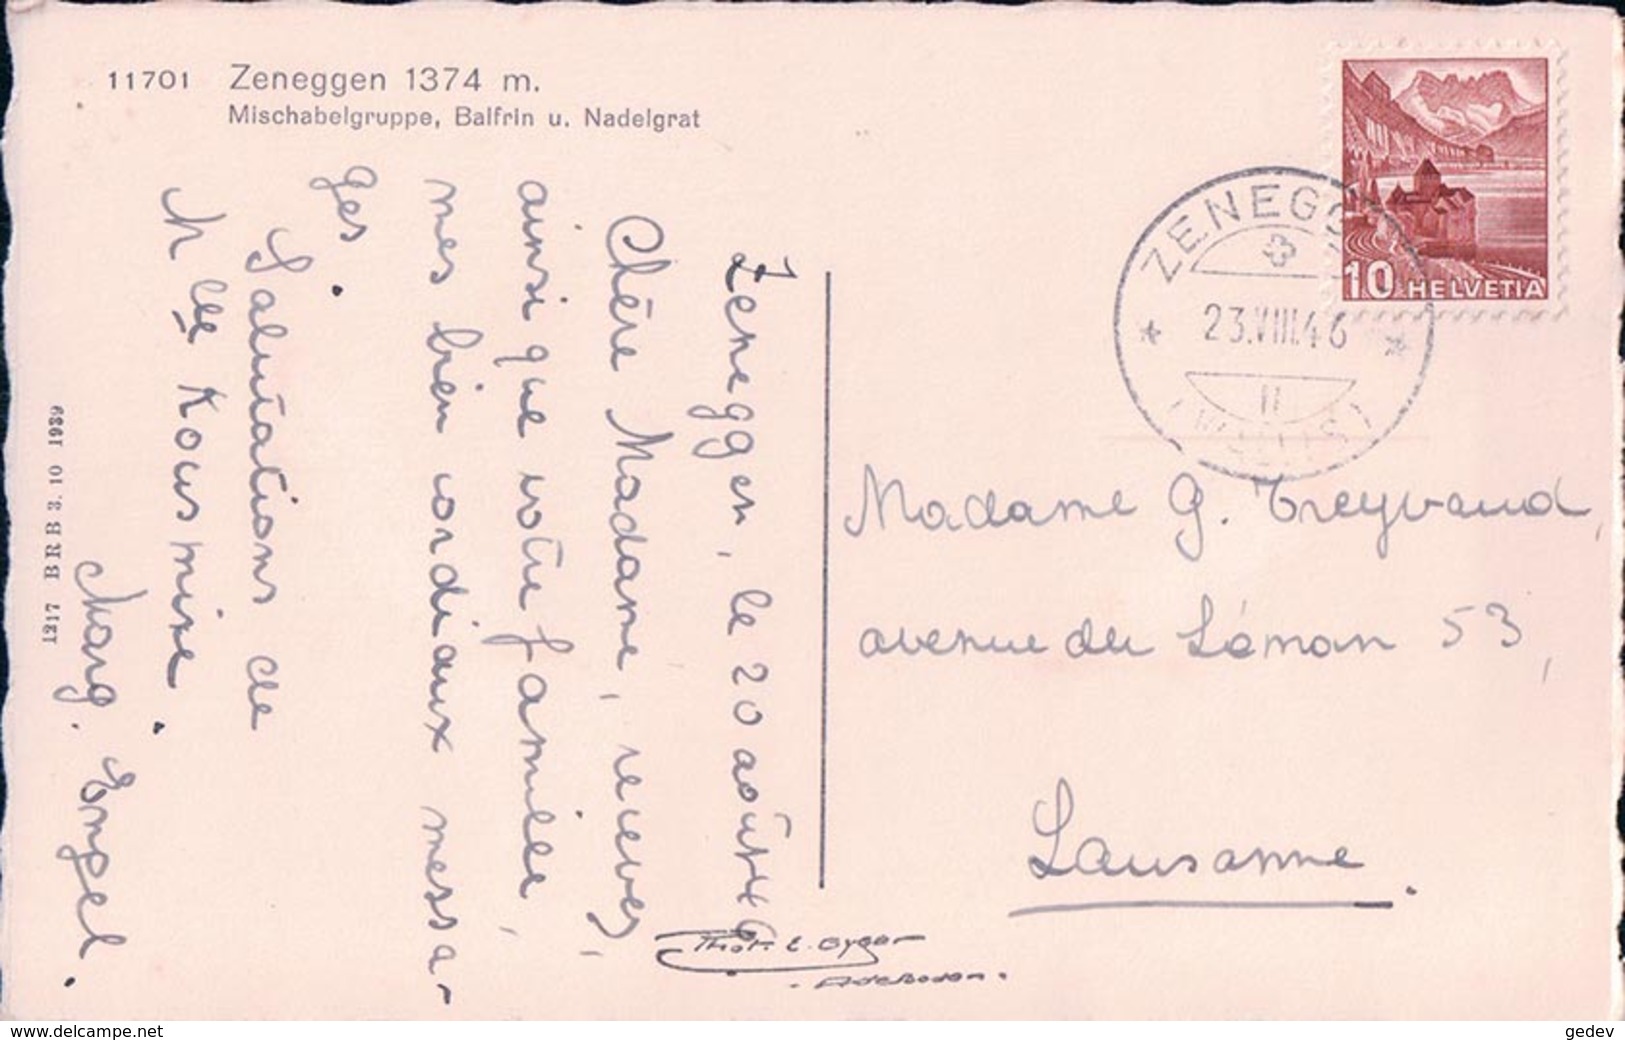 11701 Zeneggen 1374 m.
Mischabelgruppe, Balfrin u. Nadelgrat
10 HELVETIA
ZENEGGEN
23.VIII.46
(WALLIS)
Zeneggen, le 20 août 46
Chère Madame, recevez,
ainsi que votre famille,
mes bien cordiaux messa-
ges.
Salutations de
Mlle Kousmine.
Marg. Engel.
Madame G. Treyvaud,
avenue du Léman 53,
Lausanne.
1217 BRB 3. 10 1939
Phot. E. Gyger
Adelboden.
www.delcampe.net
gedev